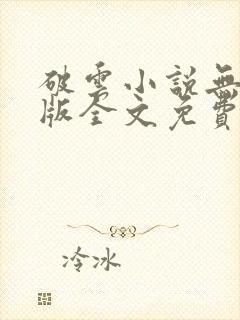 破雲小說無
版全文免費
冷冰